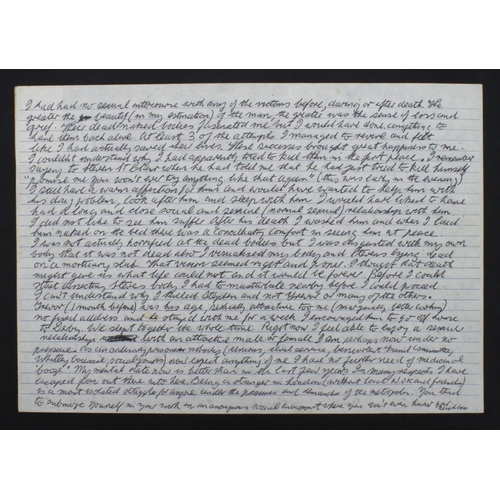 I had had no sexual intercourse with any of the victims before, during, or after death. The
greater the beauty (in my estimation) of the man, the greater was the sense of loss and
grief. Their dead naked bodies fascinated me but I would have done anything to
have them back alive. At least 3 of the attempts I managed to revive and felt
like I had actually saved their lives. These successes brought great happiness to me.
I couldn't understand why I had apparently tried to kill them in the first place. I remember
saying to Stephen when he had told me that he had just tried to kill himself
"Promise me you won't ever try anything like that again" (this was early in the evening)
I still have a warm affection for him and would have wanted to help him with
his drug problem, look after him and sleep with him. I would have liked to have
had a long and close social and sexual (normal sexual) relationship with him.
I did not like to see him suffer. After his death I washed him and when I laid
him naked on the bed there was a comfort in seeing him at peace.
I was not actually horrified at the dead bodies but I was disgusted with my own
body that it was not dead also. I visualised my body and theirs lying dead
on a mortuary slab. That vision seemed right and proper. I thought that death
might give us what life could not and it would be forever. Before I could
start dissecting Steve's body I had to masturbate nearby before I could proceed.
I can't understand why I killed Stephen and not Trevor or many of the others.
Trevor (1 month before) was his age, sexually attractive to me
no fixed address and he stayed with me for a week. I encouraged him to go off home
to Derby. We slept together the whole time. Right now I feel able to enjoy a sexual
relationship with an attractive male or female. I am, perhaps, now under no
pressure. As an ordinary prisoner nobody (unions, civil service, benevolent fund committee,
Whitley Council, social) now expect anything of me. I have no further need of medicinal
"booze". My mental state now is better than in the last few years. In many respects I have
escaped from out there into here. Being a stranger in London (without and friends)
is a most isolated struggle for anyone under the pressures and demands of the metropolis. You tend
to submerge yourself in your work in an anonymous social environment where you don't even know